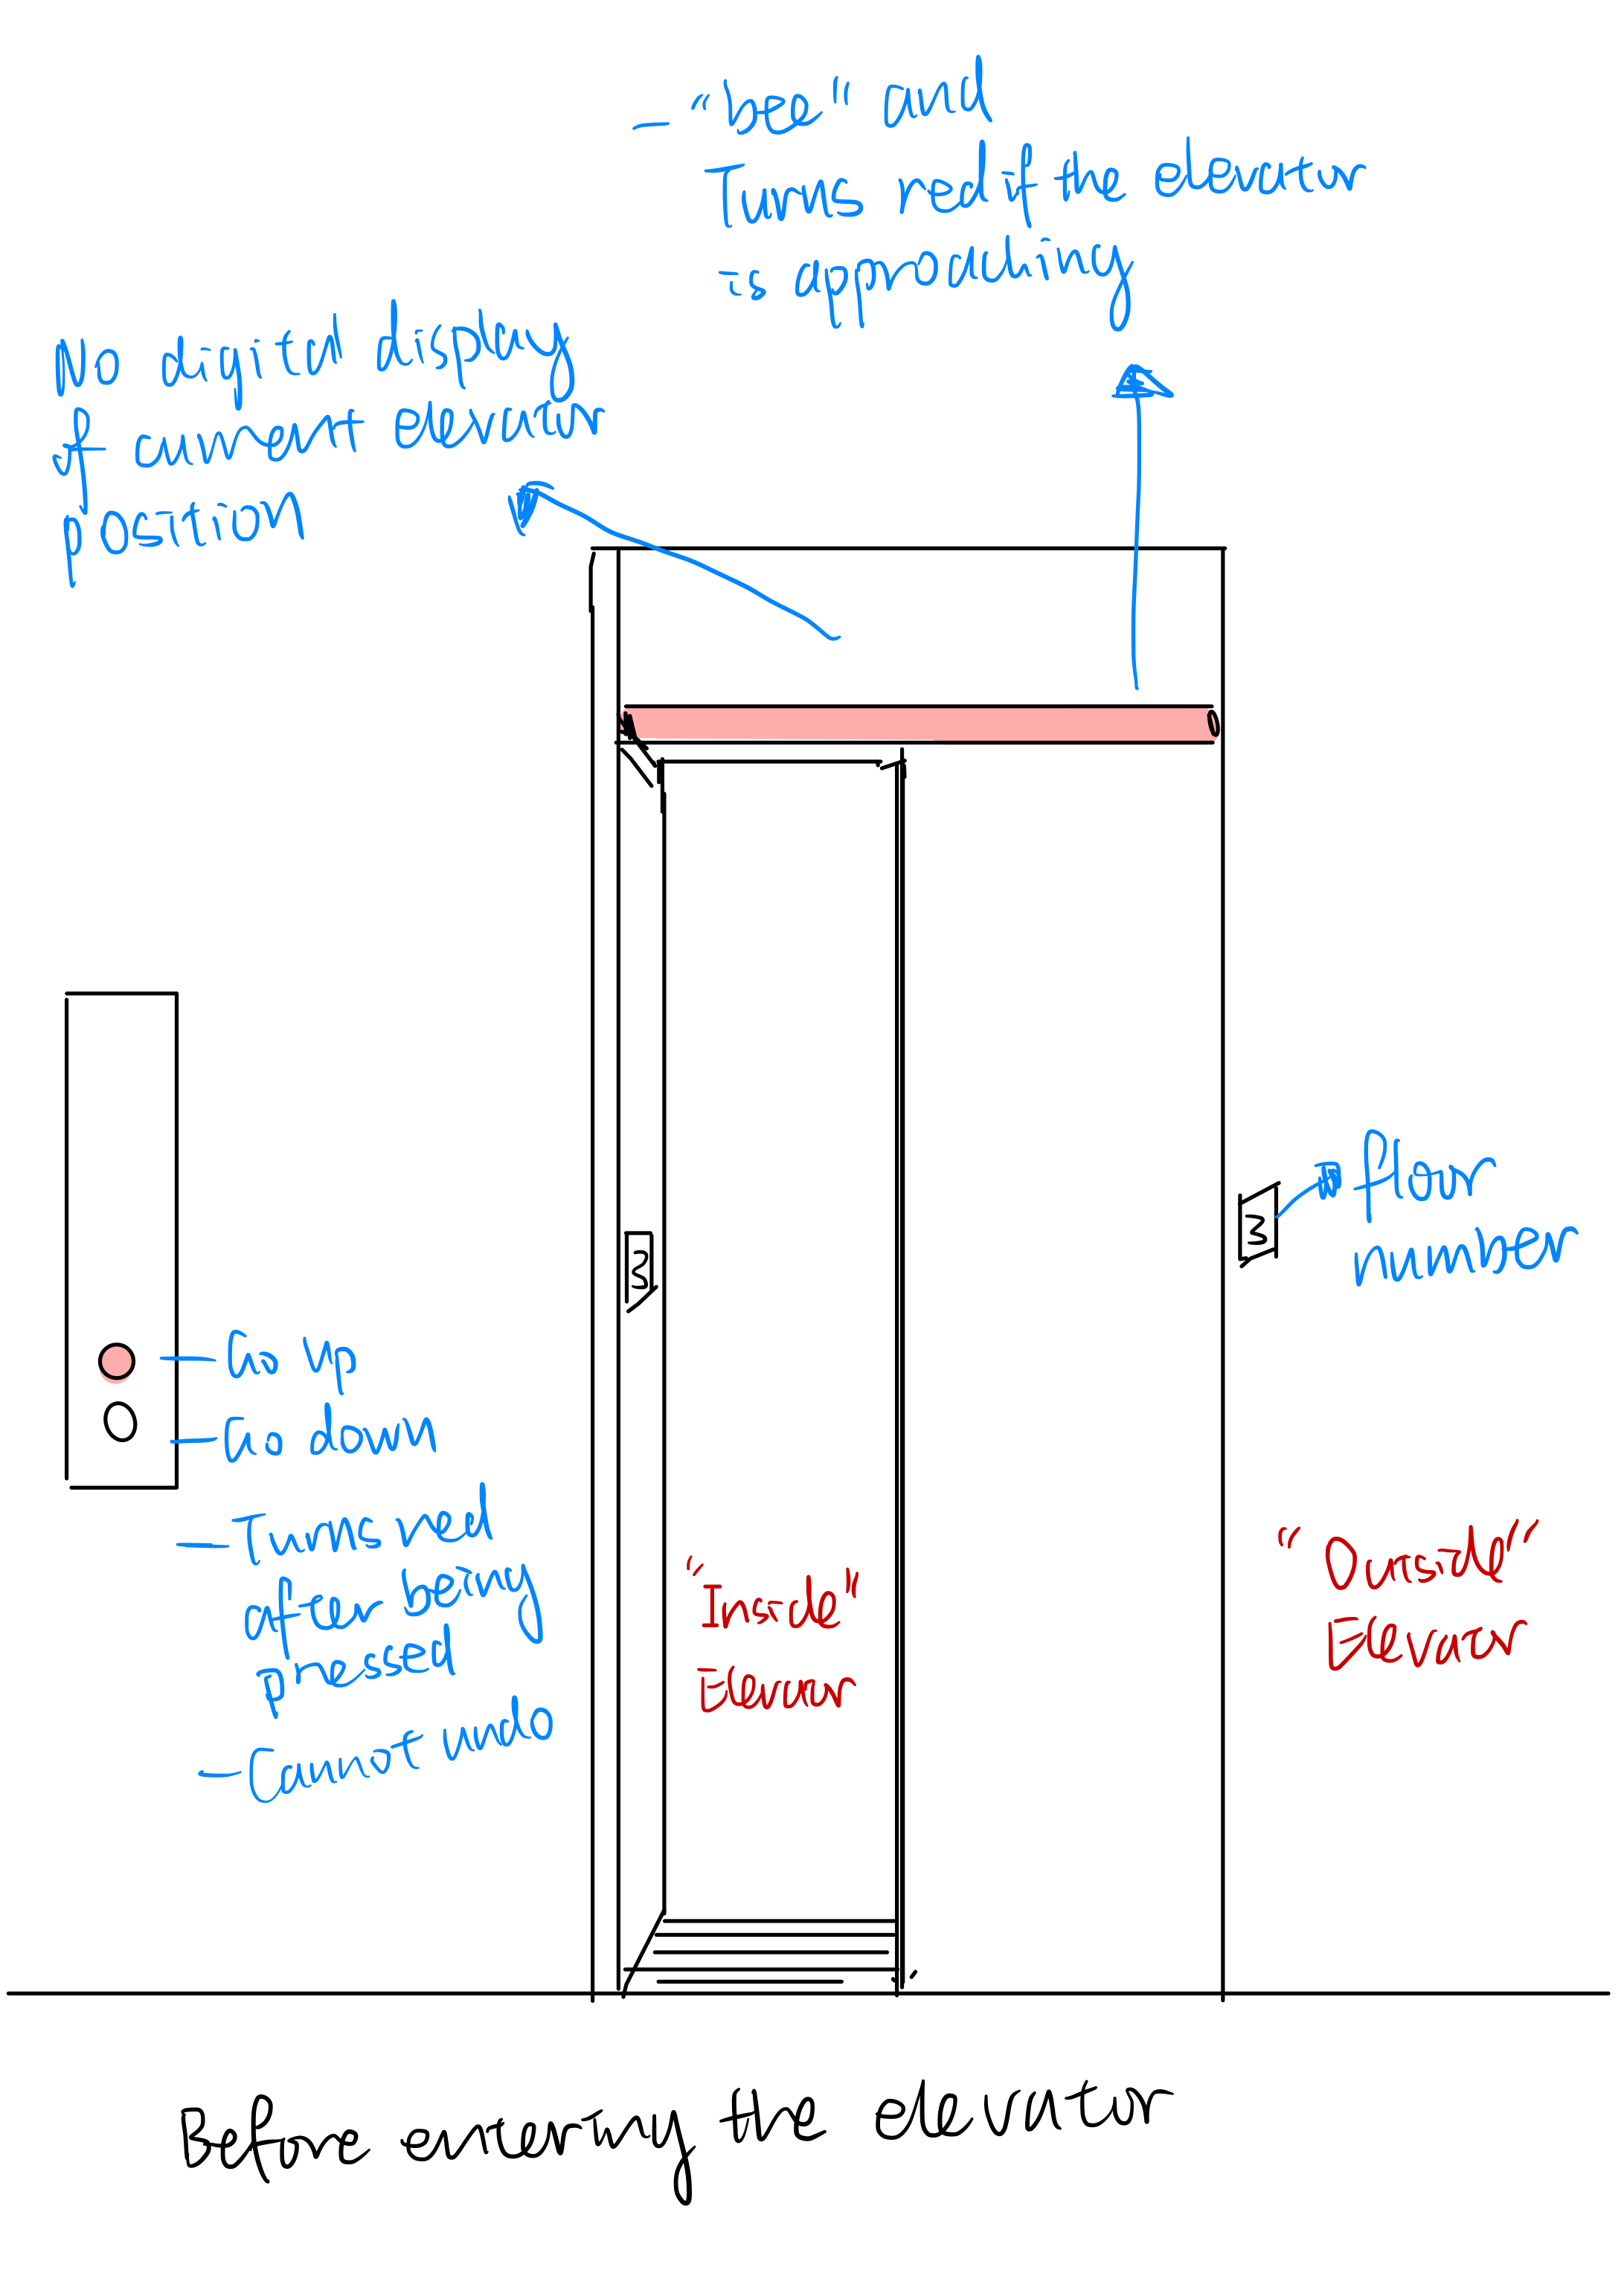 - "bee" and
Turns red if the elevator
is approaching
No digital display
of current elevator
position
floor
number
3
3
- Go up
- Go down
- Turns red
after being
pressed
- Cannot undo
"Inside"
Elevator
"Outside"
Elevator
Before entering the elevator